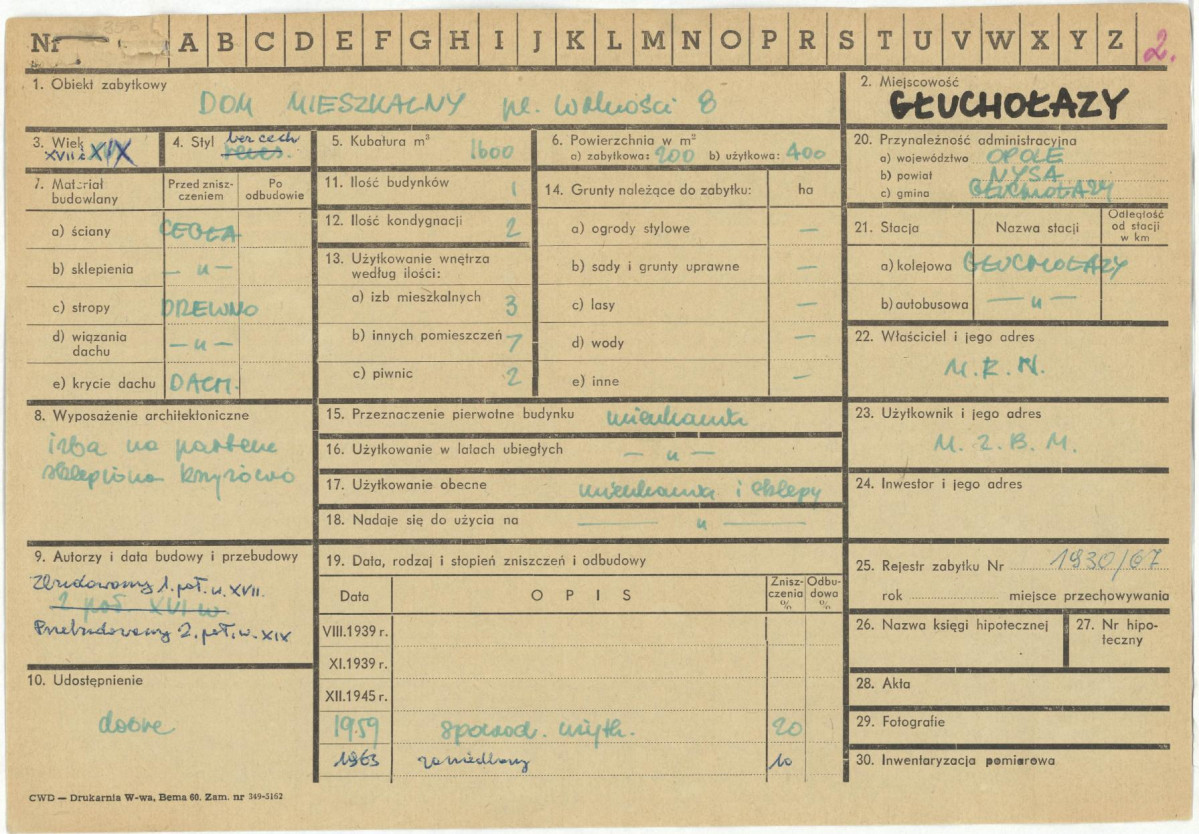 Nr A B C D E F G H I J K L M N O P R S T U V W X Y Z 2.
1. Obiekt zabytkowy
DOM MIESZKALNY pl. Wolności 8
2. Miejscowość
GŁUCHOŁAZY
3. Wiek
XVII i XIX
4. Styl bez cech
5. Kubatura m³ 1600
6. Powierzchnia w m²
a) zabytkowa: 200 b) użytkowa: 400
20. Przynależność administracyjna
a) województwo OPOLE
b) powiat NYSA
c) gmina GŁUCHOŁAZY
7. Materiał budowlany
Przed zniszczeniem
Po odbudowie
a) ściany CEGŁA
b) sklepienia — " —
c) stropy DREWNO
d) wiązania dachu — " —
e) krycie dachu DACH.
11. Ilość budynków 1
12. Ilość kondygnacji 2
13. Użytkowanie wnętrza
według ilości:
a) izb mieszkalnych 3
b) innych pomieszczeń 7
c) piwnic 2
14. Grunty należące do zabytku: ha
a) ogrody stylowe —
b) sady i grunty uprawne —
c) lasy —
d) wody —
e) inne —
21. Stacja Nazwa stacji Odległość od stacji w km
a) kolejowa GŁUCHOŁAZY
b) autobusowa — " —
22. Właściciel i jego adres
M.R.N.
8. Wyposażenie architektoniczne
izba na parterze
sklepiona krzyżowo
15. Przeznaczenie pierwotne budynku mieszkanka
16. Użytkowanie w latach ubiegłych — " —
17. Użytkowanie obecne mieszkania i sklepy
18. Nadaje się do użycia na — " —
23. Użytkownik i jego adres
M.Z.B.M.
24. Inwestor i jego adres
9. Autorzy i data budowy i przebudowy
Zbudowany 1. poł. w. XVII.
2 poł. XVI w
Przebudowany 2. poł. w. XIX
19. Data, rodzaj i stopień zniszczeń i odbudowy
Data OPIS Zniszczenia % Odbudowa %
VIII.1939 r.
XI.1939 r.
XII.1945 r.
1959 spowod. użytk. 20
1963 zaniedbany 10
25. Rejestr zabytku Nr 1930/67
rok miejsce przechowywania
26. Nazwa księgi hipotecznej
27. Nr hipoteczny
10. Udostępnienie
dobre
28. Akta
29. Fotografie
30. Inwentaryzacja pomiarowa
CWD — Drukarnia W-wa, Bema 60. Zam. nr 349-5162